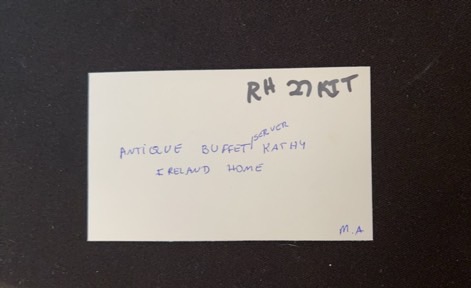 RH 27 KIT
ANTIQUE BUFFET/SERVER KATHY
IRELAND HOME
M.A